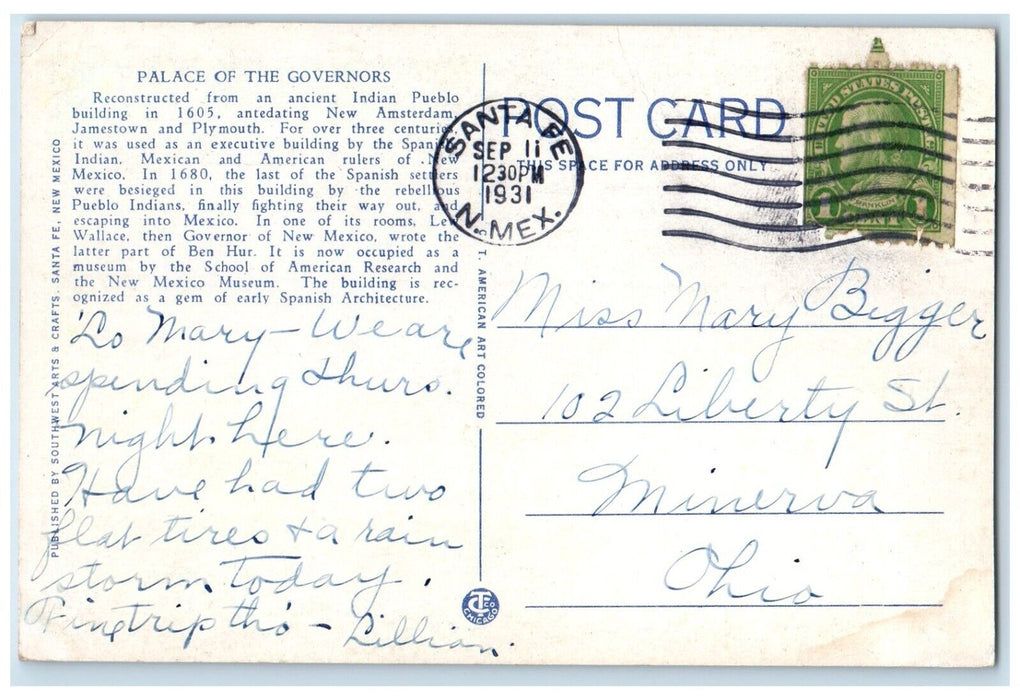 PALACE OF THE GOVERNORS
Reconstructed from an ancient Indian Pueblo
building in 1605, antedating New Amsterdam,
Jamestown and Plymouth. For over three centuries
it was used as an executive building by the Spanish,
Indian, Mexican and American rulers of New
Mexico. In 1680, the last of the Spanish settlers
were besieged in this building by the rebellious
Pueblo Indians, finally fighting their way out, and
escaping into Mexico. In one of its rooms, Lew
Wallace, then Governor of New Mexico, wrote the
latter part of Ben Hur. It is now occupied as a
museum by the School of American Research and
the New Mexico Museum. The building is rec-
ognized as a gem of early Spanish Architecture.
'Lo Mary - We are
spending thurs.
night here.
Have had two
flat tires & a rain
storm today.
Fine trip tho - Lillian.
PUBLISHED BY SOUTHWEST ARTS & CRAFTS, SANTA FE, NEW MEXICO
C. T. AMERICAN ART COLORED
CTCO
CHICAGO
POST CARD
THIS SPACE FOR ADDRESS ONLY
SANTA FE
SEP 11
12 30PM
1931
N. MEX.
UNITED STATES POSTAGE
1 FRANKLIN 1
Miss Mary Bigger
102 Liberty St.
Minerva
Ohio